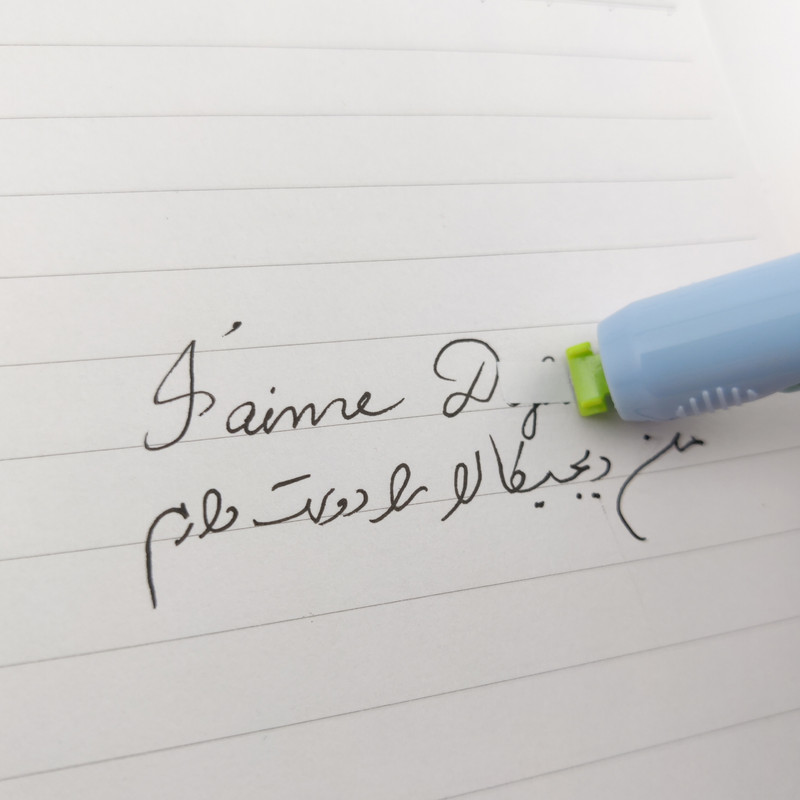 J'aime D
من دیجیکالا را دوست دارم